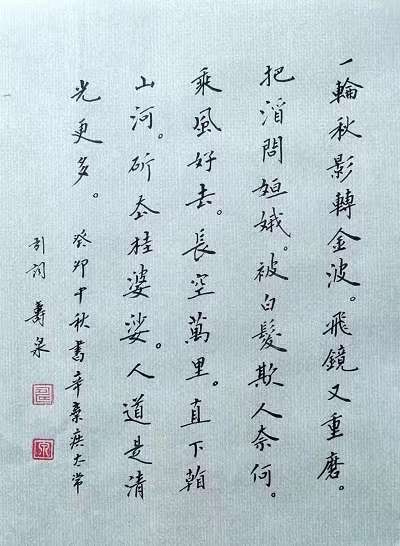 一輪秋影轉金波。飛鏡又重磨。
把酒問姮娥。被白髮欺人奈何。
乘風好去。長空萬里。直下看
山河。斫去桂婆娑。人道是清
光更多。
癸卯中秋書辛棄疾太常
引詞 壽泉